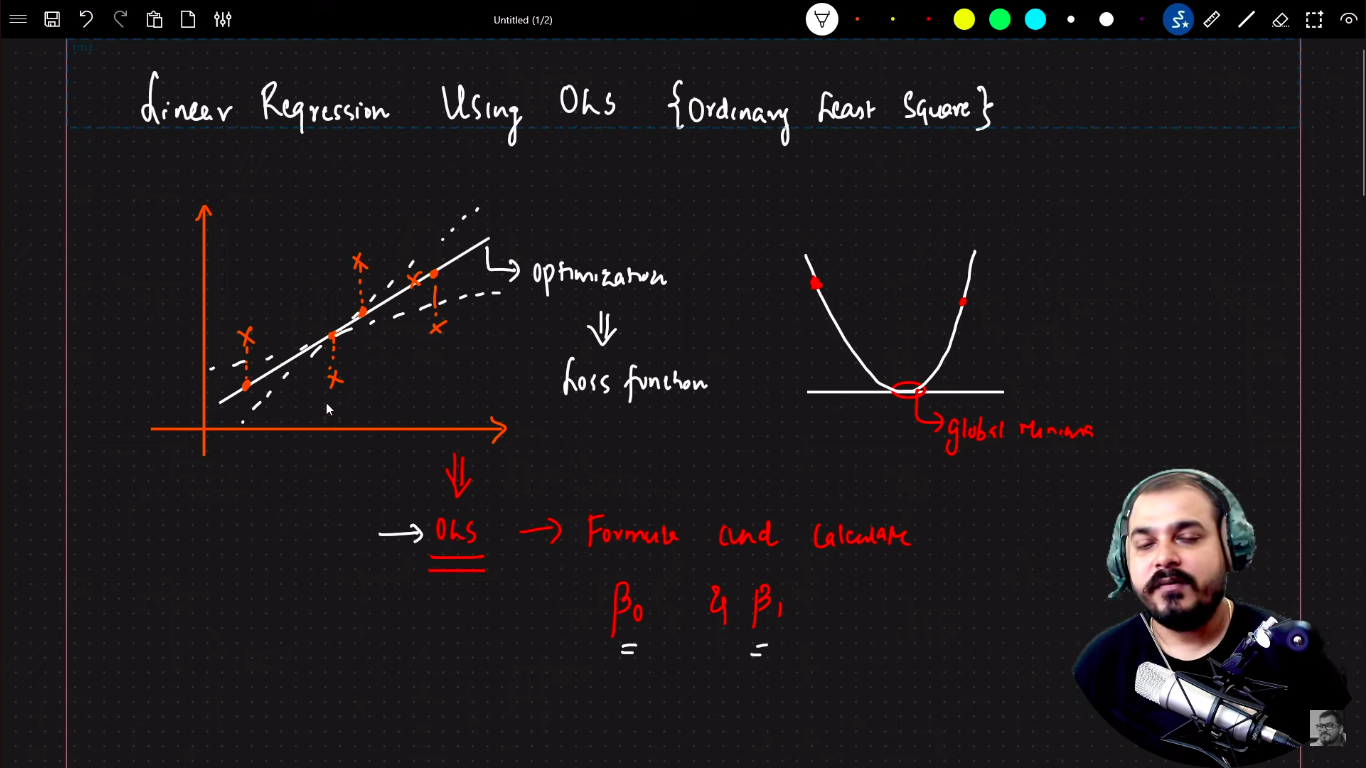 Untitled (1/2)
TITLE
Linear Regression Using OLS {Ordinary Least Square}
Optimization
Loss function
global minima
OLS → Formula and Calculate
β0 & β1